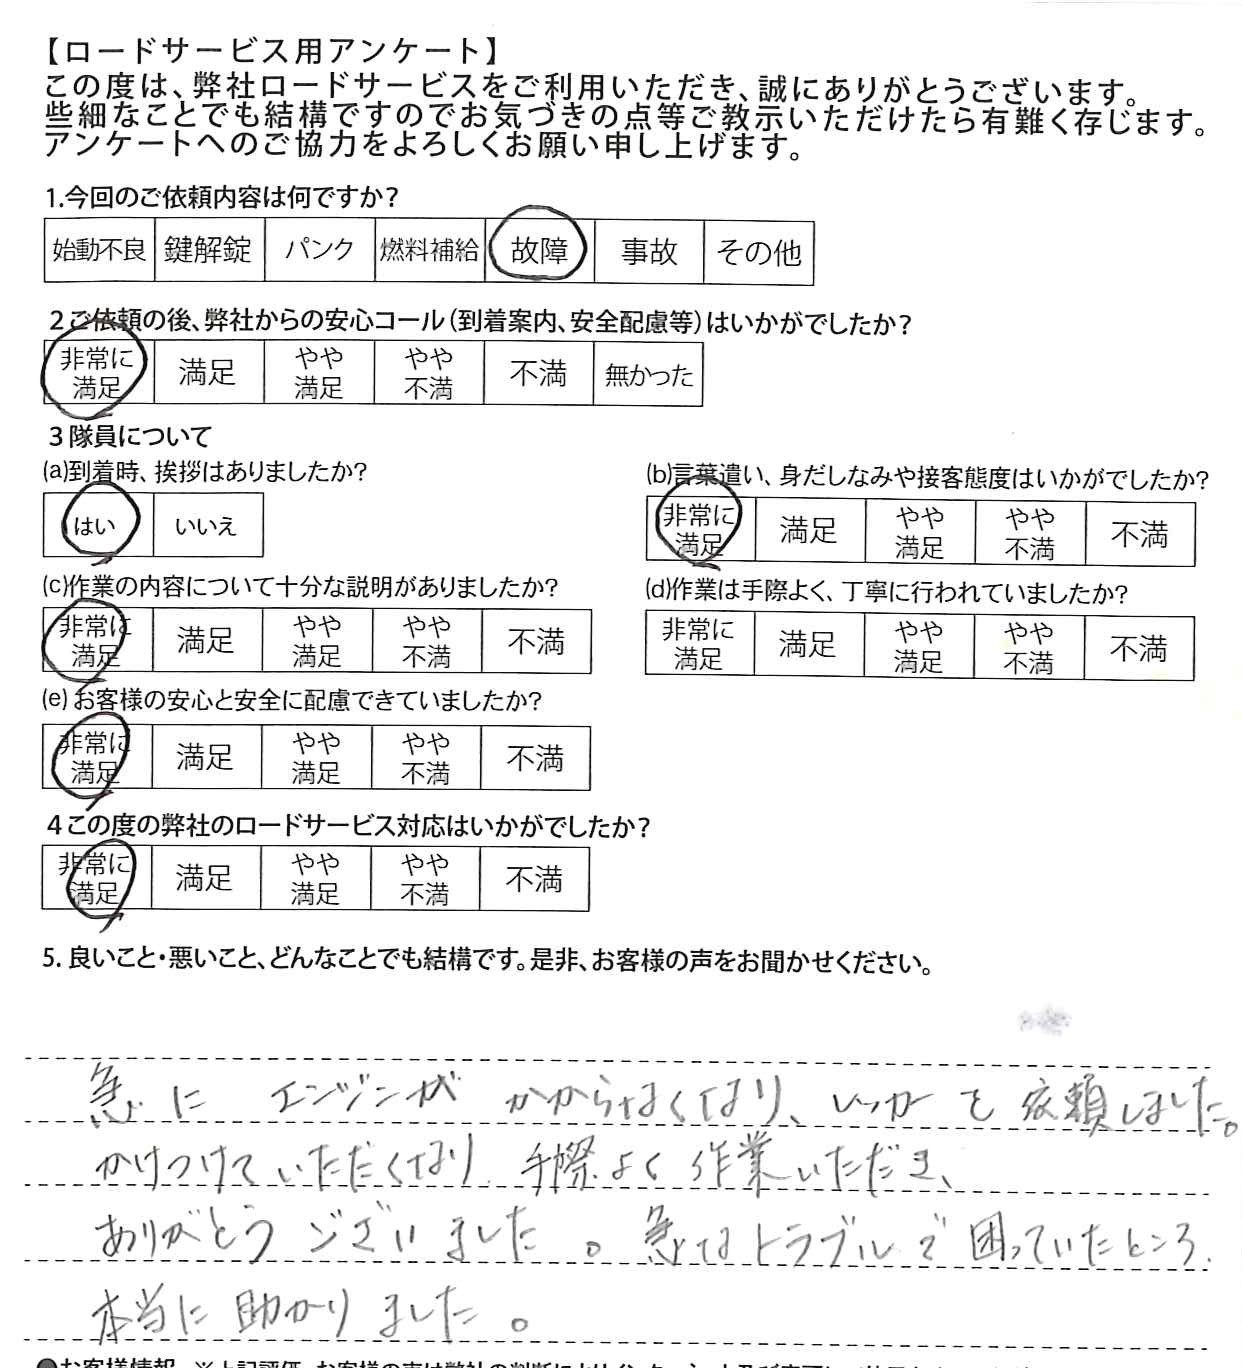 【ロードサービス用アンケート】
この度は、弊社ロードサービスをご利用いただき、誠にありがとうございます。
些細なことでも結構ですのでお気づきの点等ご教示いただけたら有難く存じます。
アンケートへのご協力をよろしくお願い申し上げます。
1.今回のご依頼内容は何ですか?
始動不良 鍵解錠 パンク 燃料補給 故障 事故 その他
2ご依頼の後、弊社からの安心コール(到着案内、安全配慮等)はいかがでしたか?
非常に満足 満足 やや満足 やや不満 不満 無かった
3隊員について
(a)到着時、挨拶はありましたか?
はい いいえ
(b)言葉遣い、身だしなみや接客態度はいかがでしたか?
非常に満足 満足 やや満足 やや不満 不満
(c)作業の内容について十分な説明がありましたか?
非常に満足 満足 やや満足 やや不満 不満
(d)作業は手際よく、丁寧に行われていましたか?
非常に満足 満足 やや満足 やや不満 不満
(e)お客様の安心と安全に配慮できていましたか?
非常に満足 満足 やや満足 やや不満 不満
4この度の弊社のロードサービス対応はいかがでしたか?
非常に満足 満足 やや満足 やや不満 不満
5.良いこと・悪いこと、どんなことでも結構です。是非、お客様の声をお聞かせください。
急に エンジンが かからなくなり、レッカーを依頼しました。
かけつけていただくなり 手際よく作業いただき、
ありがとうございました。急なトラブルで困っていたところ、
本当に助かりました。
●お客様情報